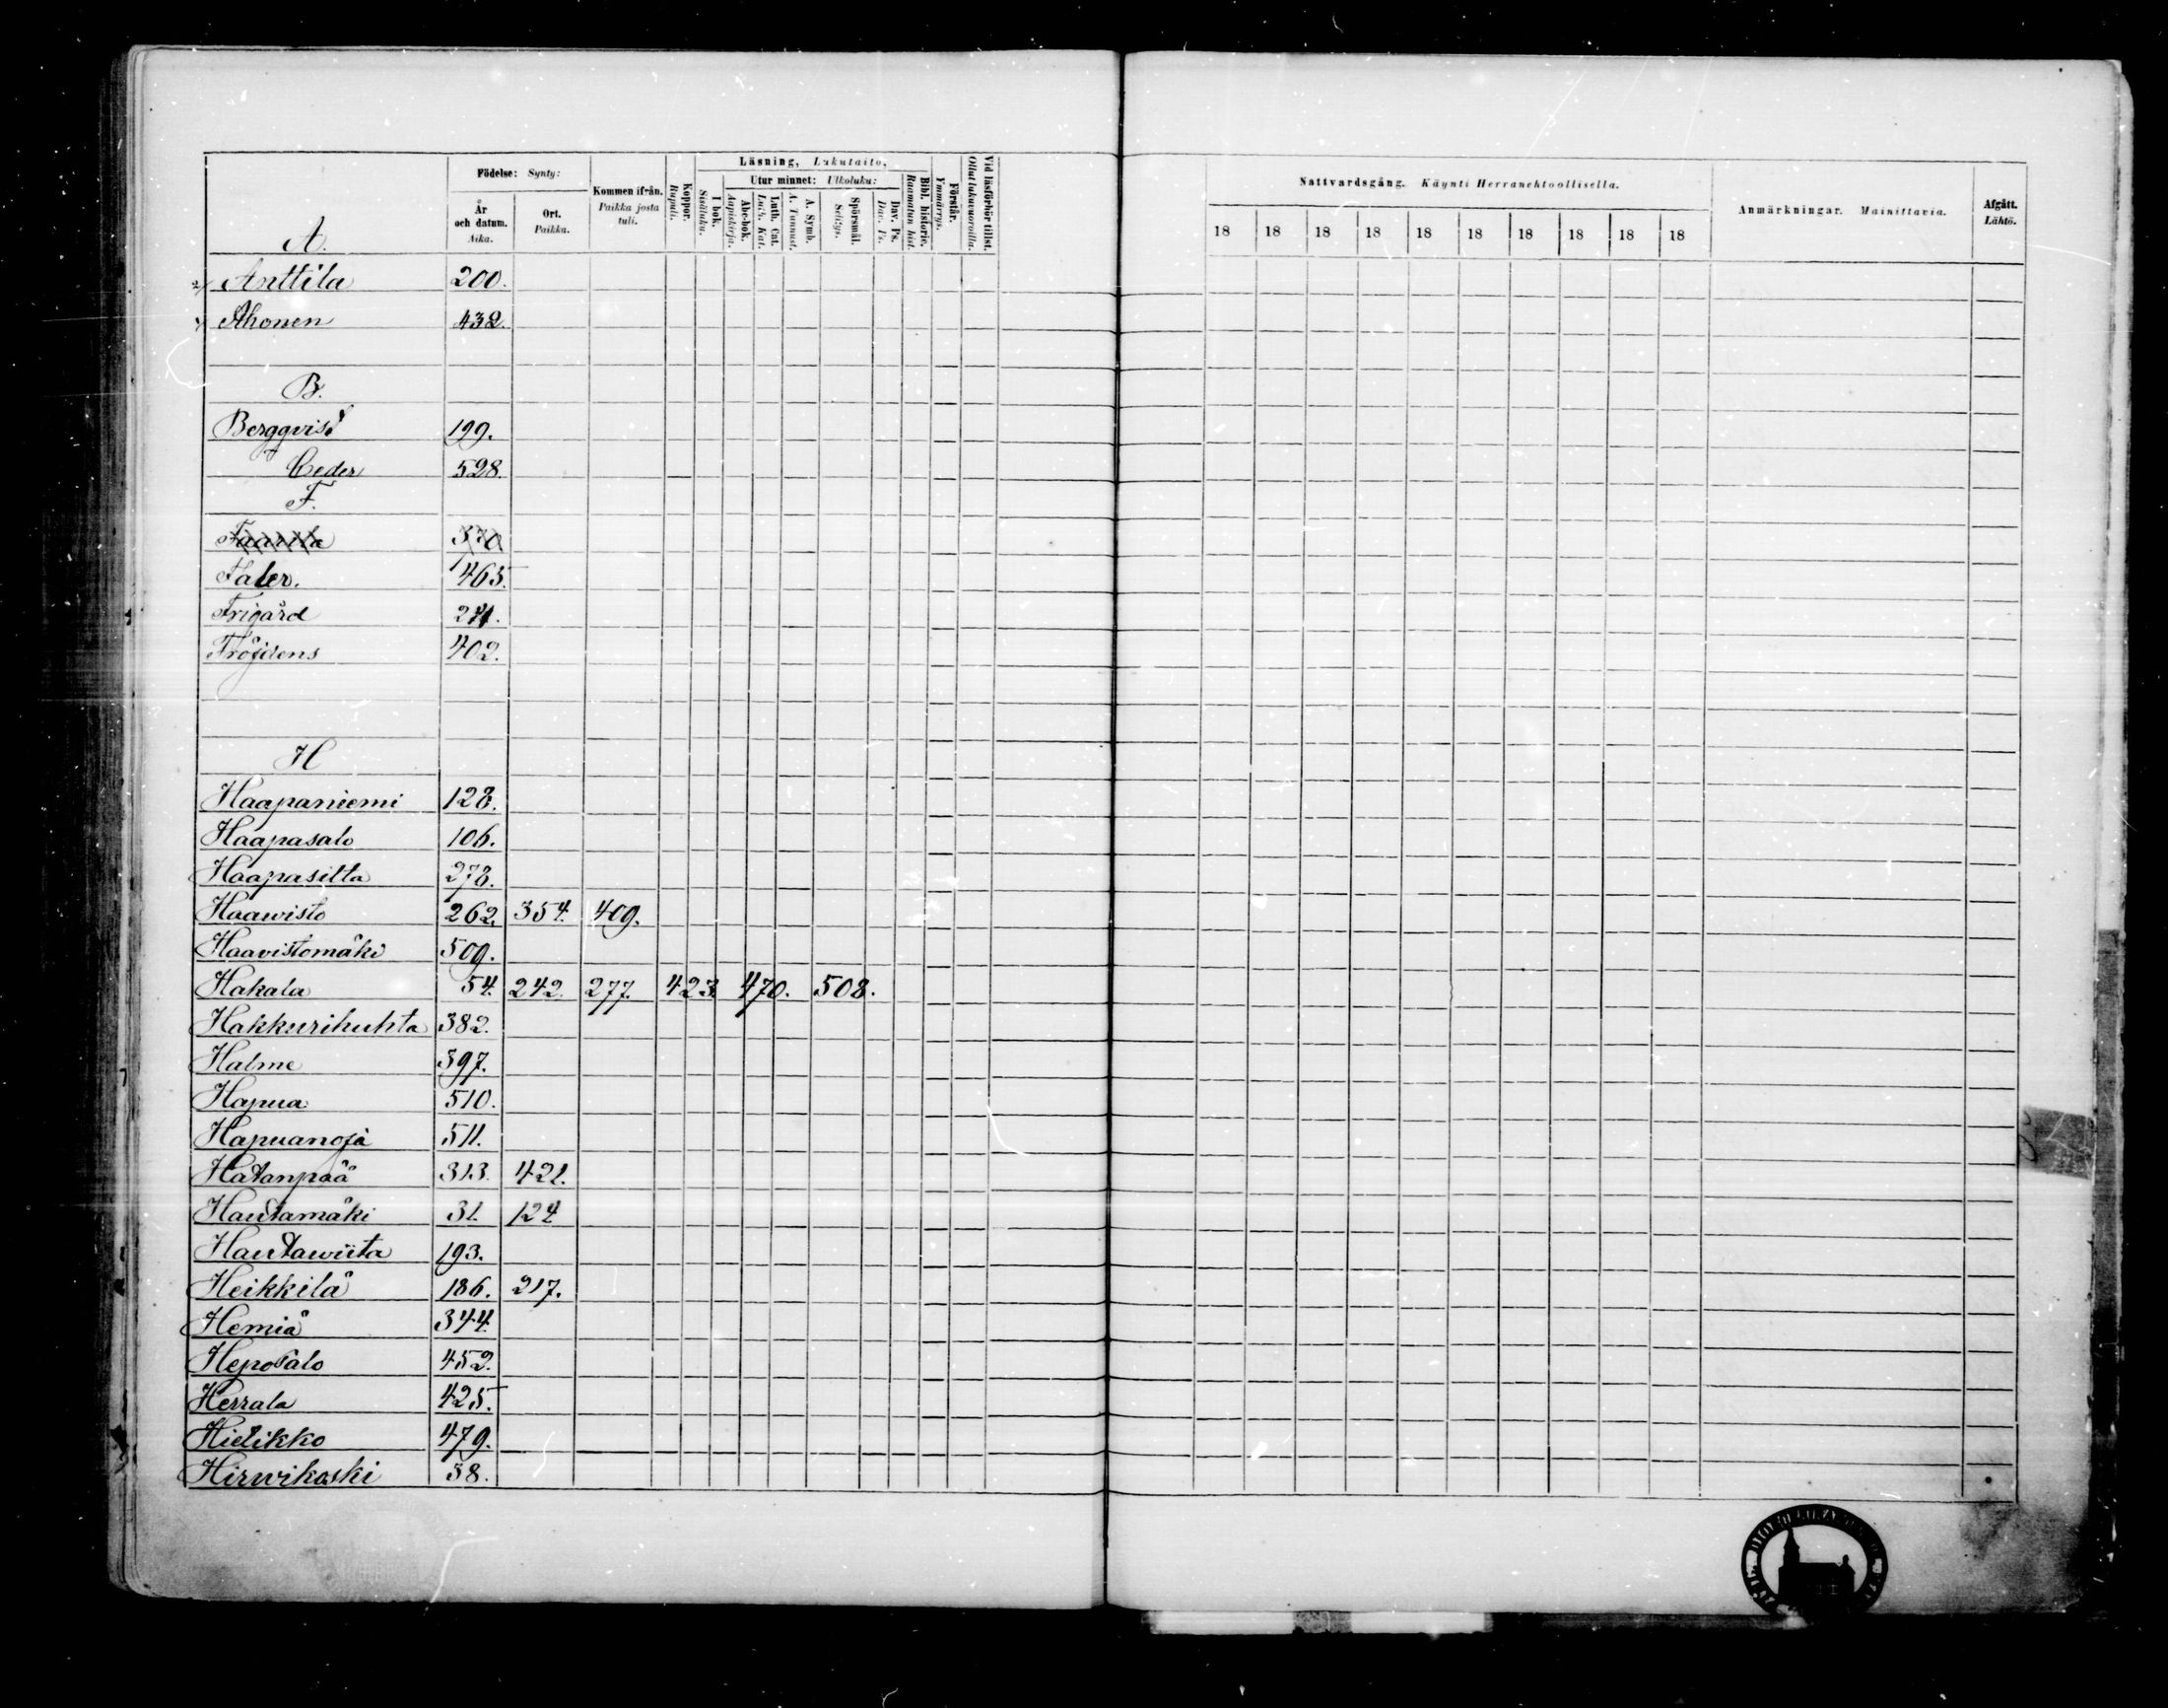 Födelse: Synty:
Kommen ifrån. Paikka josta tuli.
Koppor. Rupuli.
Läsning, Lukutaito,
I bok. Sisäluku.
Utur minnet: Ulkoluku:
Abc-bok. Aapiskirja.
Luth. Cat. Luth. Kat.
A. Symb. A. Tunnust.
Spörsmål. Selitys.
Dav. Ps. Dav. Ps.
Bibl. historie. Raamatun hist.
Förstår. Ymmärrys.
Vid läsförhör tillst. Ollut lukuvuoroilla.
År och datum. Aika.
Ort. Paikka.
Nattvardsgång. Käynti Herranehtoollisella.
18 18 18 18 18 18 18 18 18 18
Anmärkningar. Mainittavia.
Afgått. Lähtö.
A.
Anttila 200.
Ahonen 432.
B.
Bergqvist 199.
Ceder 528.
F.
Faler. 465.
Frigård
Fröjdens 402.
H
Haapaniemi 128.
Haapasalo 106.
Haapasilta 278.
Haawisto 262. 354. 409.
Haavistomäki 509.
Hakala 54. 242. 277. 423 470. 508.
Hakkurihuhta 382.
Halme 397.
Hapua 510.
Hapuanoja 511.
Hatanpää 313. 421.
Hautamäki 31. 124
Hautawiita 193.
Heikkilä 186. 217.
Hemiä 344.
Heposalo 452.
Herrala 425.
Hietikko 479.
Hirwikoski 38.